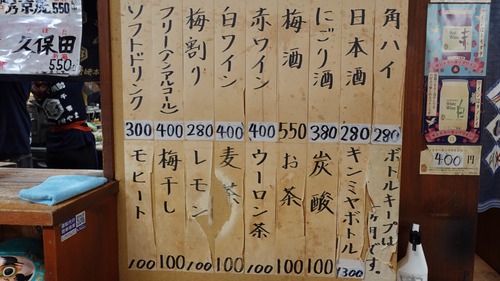 角ハイ
280
日本酒
280
にごり酒
380
梅酒
550
赤ワイン
400
白ワイン
400
梅割り
280
フリー(ノンアルコール)
400
ソフトドリンク
300
ボトルキープは
ヶ月です。
キンミヤボトル
1300
炭酸
100
お茶
100
ウーロン茶
100
麦茶
100
レモン
100
梅干し
100
モヒート
100
550
久保田
550円
400円